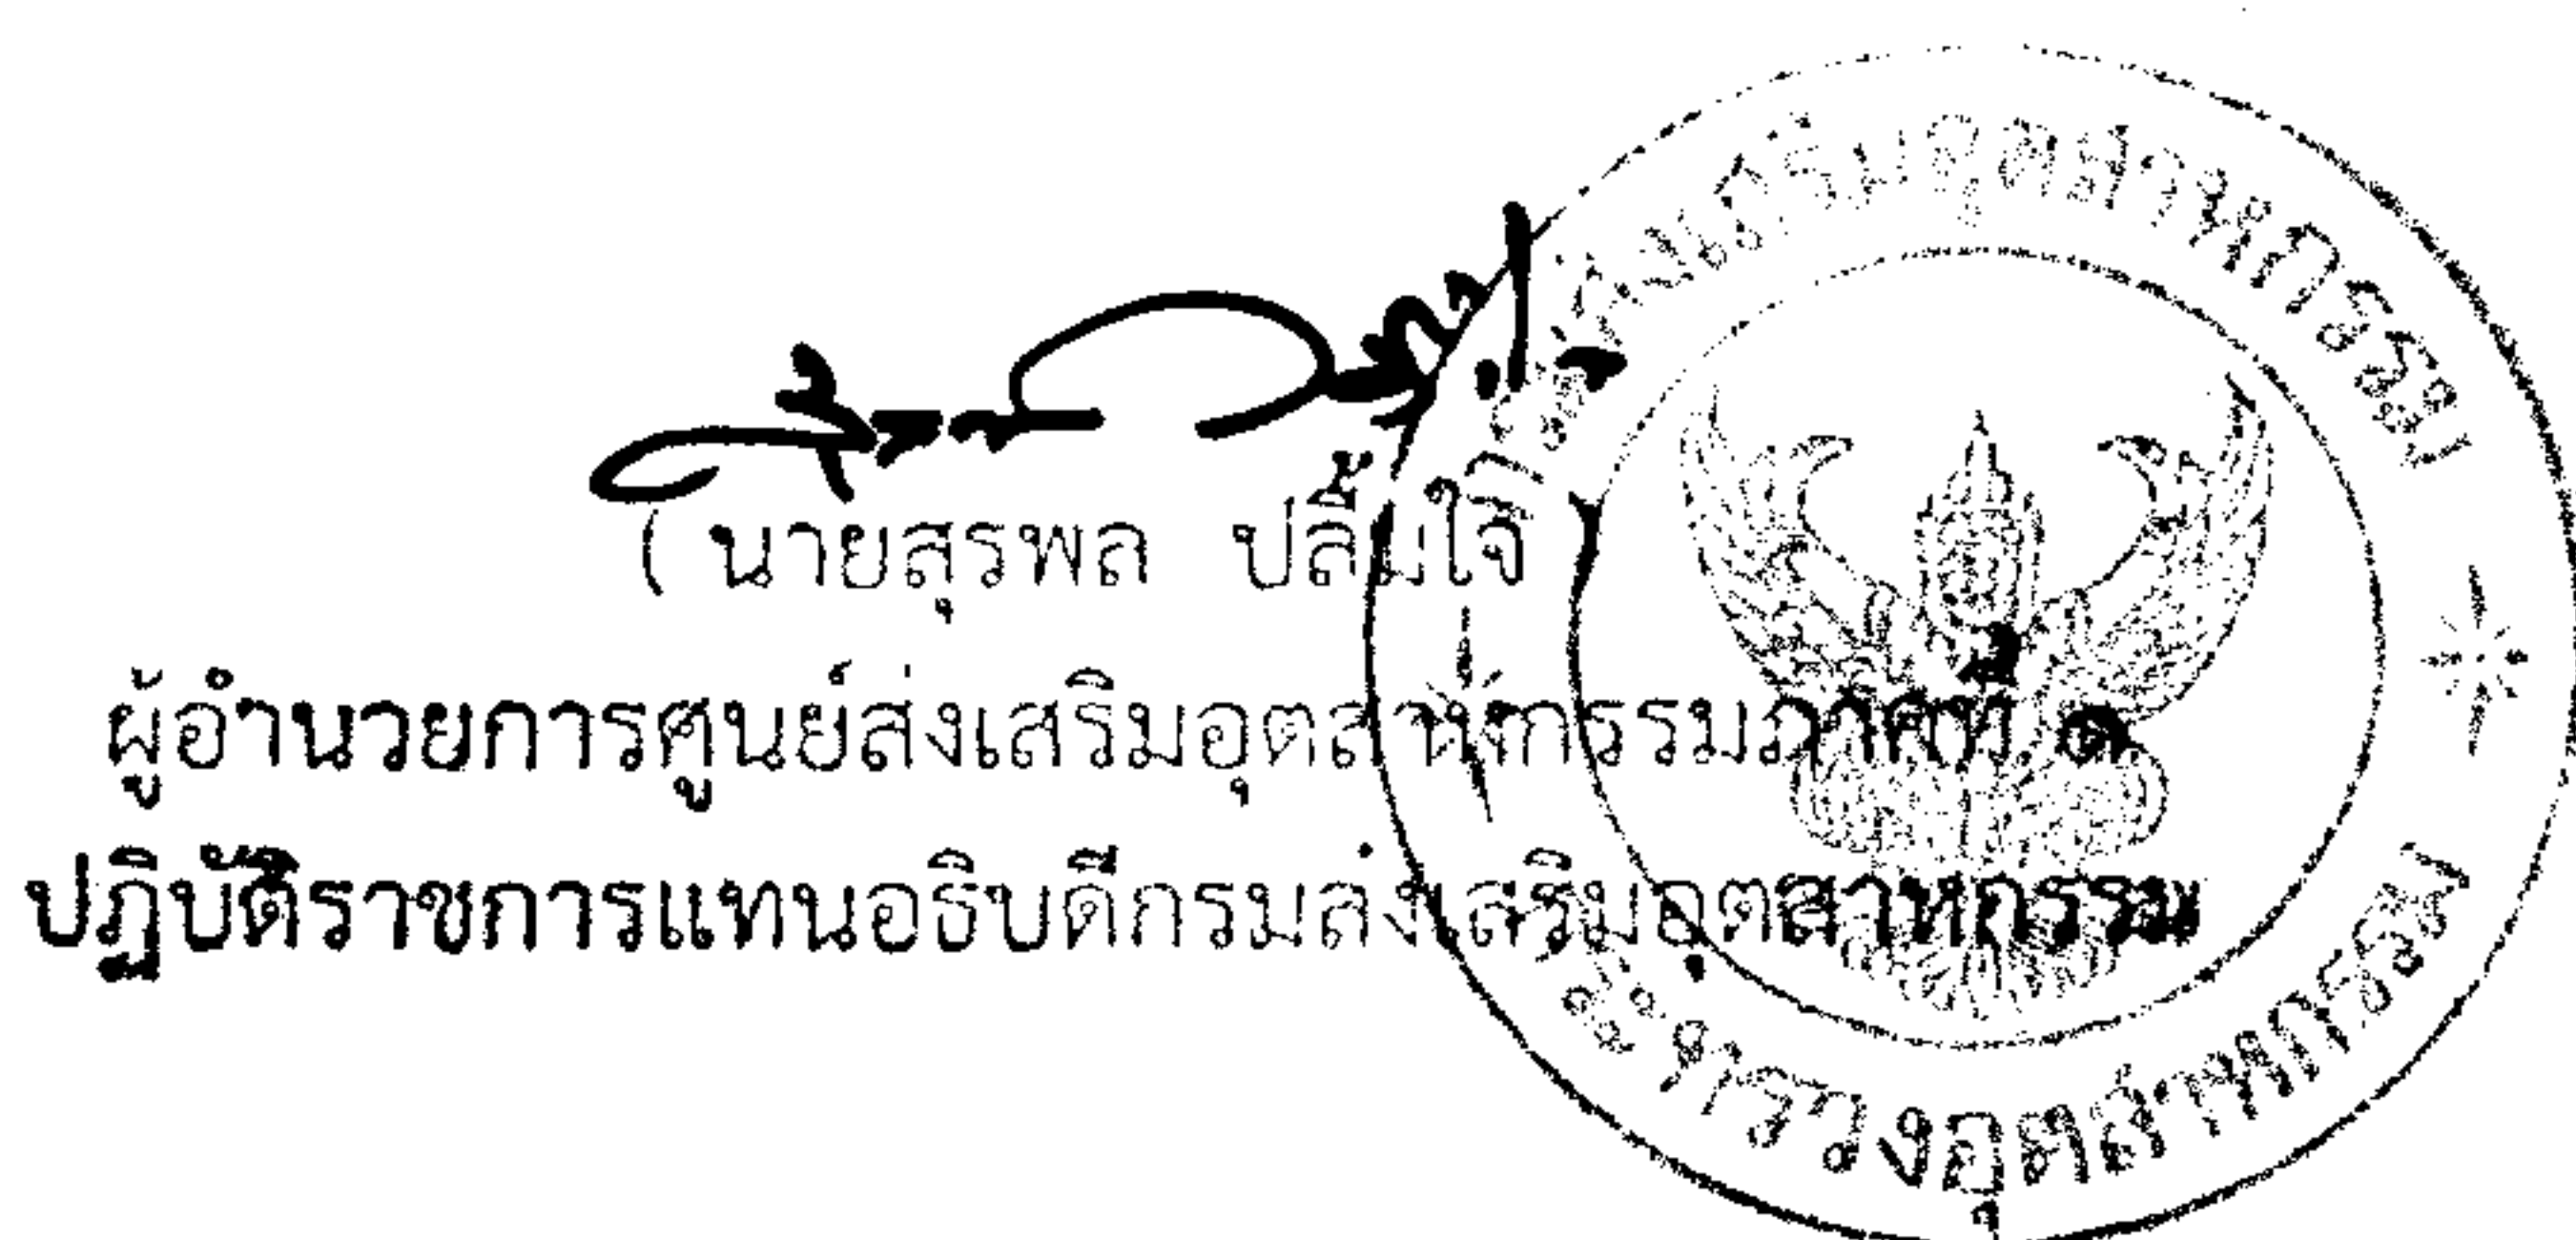 ( นายสุรพล ปลื้มใจ )
ผู้อำนวยการศูนย์ส่งเสริมอุตสาหกรรมภาคที่ ๑
ปฏิบัติราชการแทนอธิบดีกรมส่งเสริมอุตสาหกรรม
กรมส่งเสริมอุตสาหกรรม
กระทรวงอุตสาหกรรม